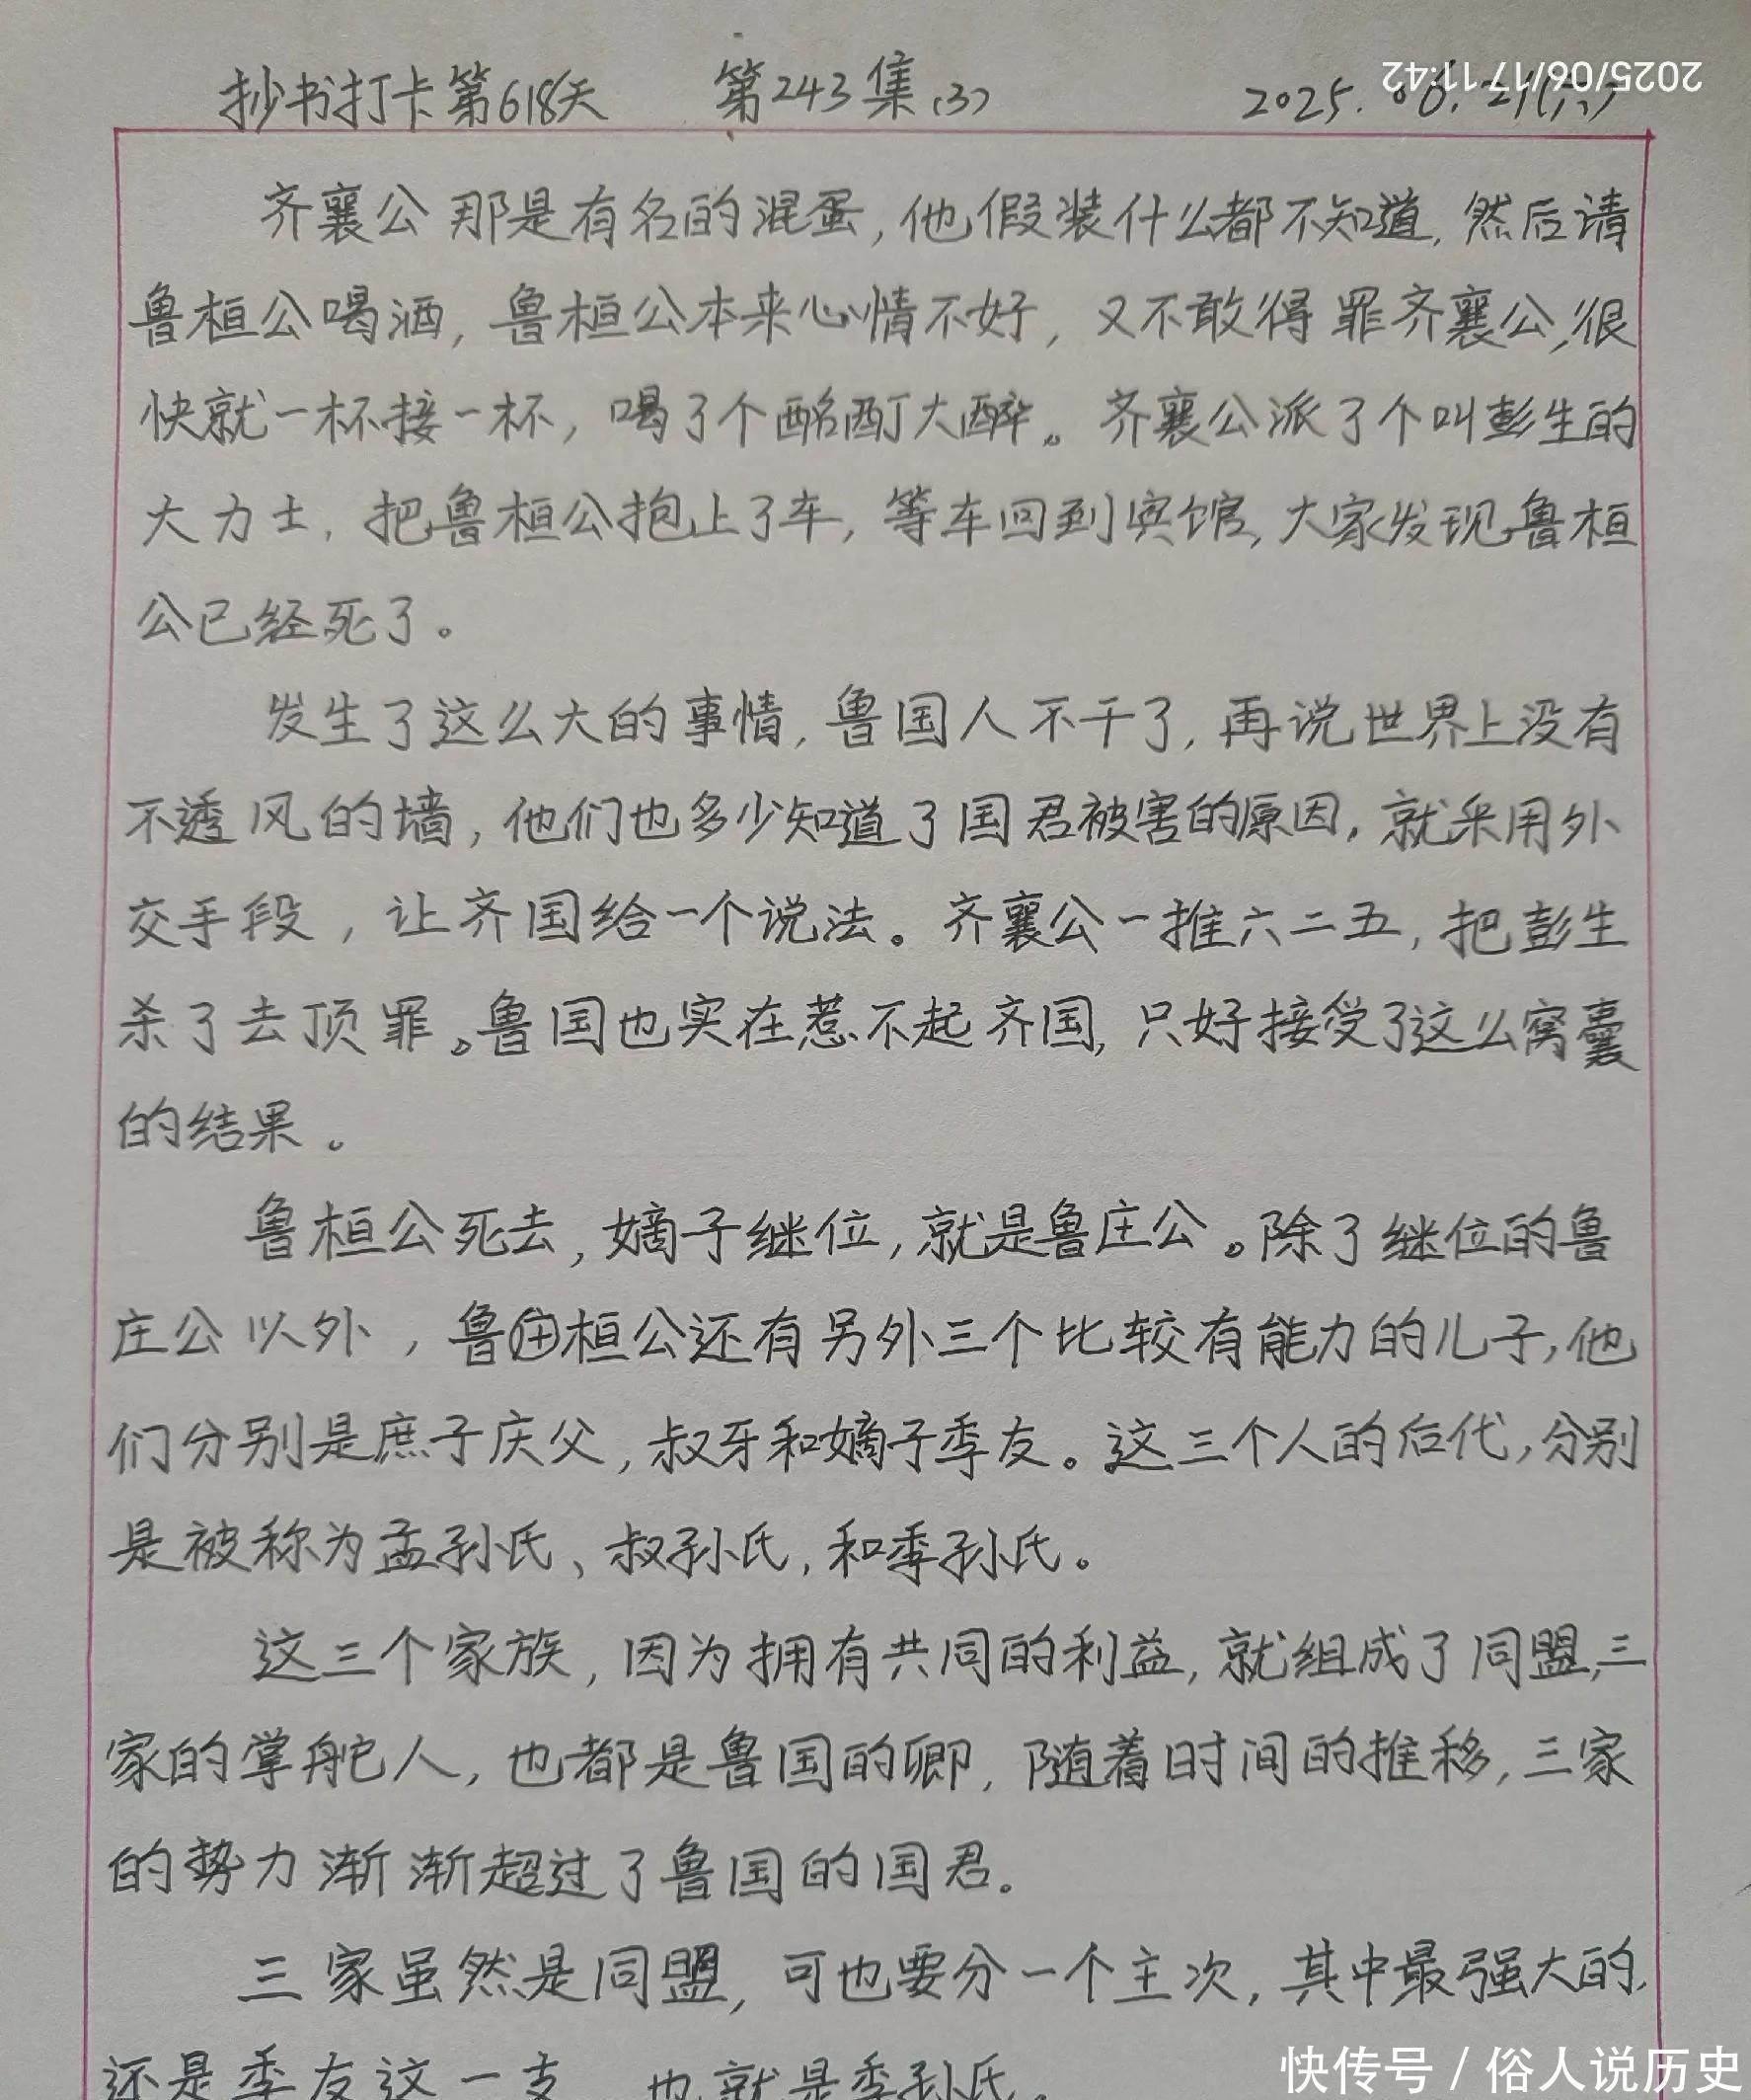 抄书打卡第618天 第243集(3) 2025.06.21(六)
2025/06/17 11:42
齐襄公那是有名的混蛋,他假装什么都不知道,然后请
鲁桓公喝酒,鲁桓公本来心情不好,又不敢得罪齐襄公,很
快就一杯接一杯,喝了个酩酊大醉。齐襄公派了个叫彭生的
大力士,把鲁桓公抱上了车,等车回到宾馆,大家发现鲁桓
公已经死了。
发生了这么大的事情,鲁国人不干了,再说世界上没有
不透风的墙,他们也多少知道了国君被害的原因,就采用外
交手段,让齐国给一个说法。齐襄公一推六二五,把彭生
杀了去顶罪。鲁国也实在惹不起齐国,只好接受了这么窝囊
的结果。
鲁桓公死去,嫡子继位,就是鲁庄公。除了继位的鲁
庄公以外,鲁庄桓公还有另外三个比较有能力的儿子,他
们分别是庶子庆父,叔牙和嫡子季友。这三个人的后代,分别
是被称为孟孙氏、叔孙氏,和季孙氏。
这三个家族,因为拥有共同的利益,就组成了同盟,三
家的掌舵人,也都是鲁国的卿,随着时间的推移,三家
的势力渐渐超过了鲁国的国君。
三家虽然是同盟,可也要分一个主次,其中最强大的,
还是季友这一支,也就是季孙氏。
快传号/俗人说历史